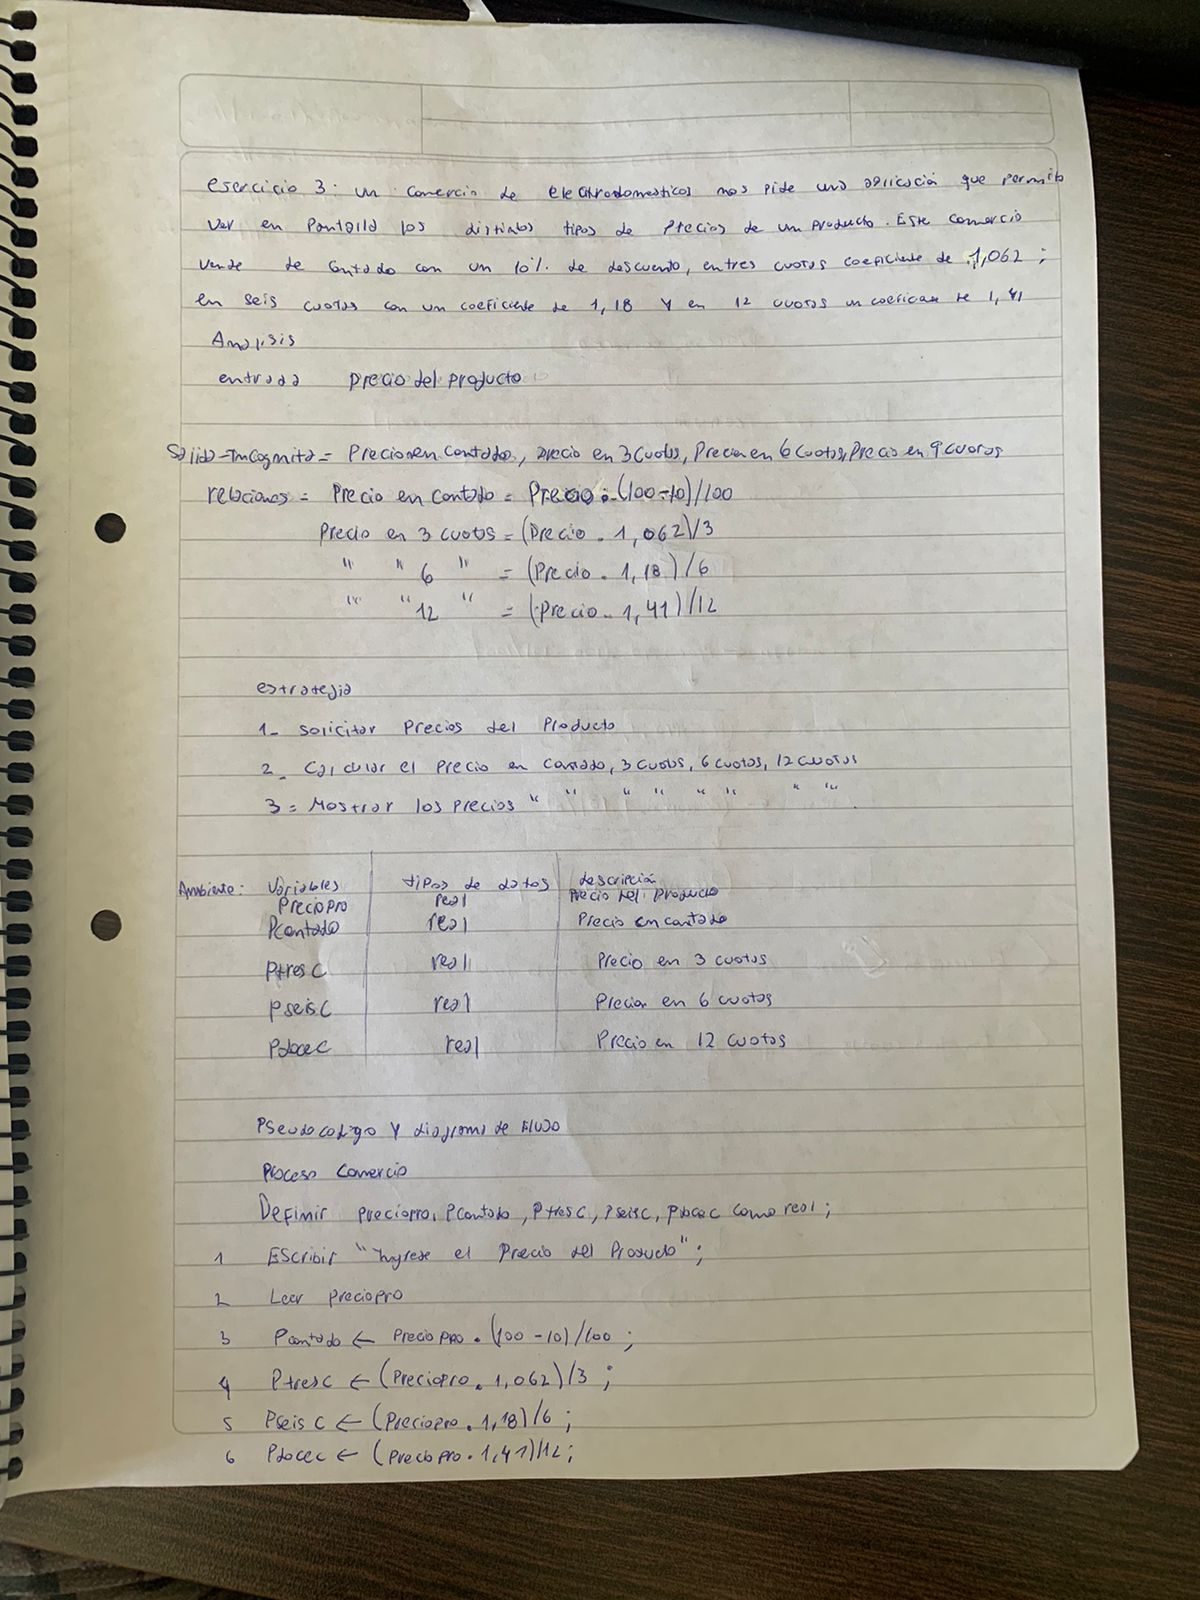 esercicio 3: un comercio de electrodomesticos nos pide una aplicación que permita
ver en Pantalla los distintos tipos de Precios de un Producto. Este comercio
vende de contado con un 10% de descuento, entres cuotas coeficiente de 1,062;
en seis cuotas con un coeficiente de 1,18 y en 12 cuotas un coeficiente de 1,41
Analisis
entrada precio del producto
Salida-Incognita = Precio en contado, precio en 3 cuotas, Precio en 6 cuotas, Precio en 9 cuotas
relaciones = Precio en contado = Precio . (100-10)/100
Precio en 3 cuotas = (Precio . 1,062)/3
" " 6 " = (Precio . 1,18)/6
" " 12 " = (Precio . 1,41)/12
estrategia
1- Solicitar Precios del Producto
2- Calcular el Precio en contado, 3 cuotas, 6 cuotas, 12 cuotas
3= Mostrar los Precios " " " " " " " "
Ambiente: Variables tipos de datos descripción
PrecioPro real Precio del Producto
Pcontado real Precio en contado
PtresC real Precio en 3 cuotas
PseisC real Precion en 6 cuotas
PdoceC real Precio en 12 cuotas
Pseudocodigo y diagrama de Flujo
Proceso Comercio
Definir preciopro, Pcontado, PtresC, PseisC, PdoceC como real;
1 Escribir "Ingrese el Precio del Producto";
2 Leer preciopro
3 Pcontado ← PrecioPro . (100-10)/100;
4 PtresC ← (Preciopro . 1,062)/3;
5 PseisC ← (Preciopro . 1,18)/6;
6 Pdocec ← (preciopro . 1,41)/12;